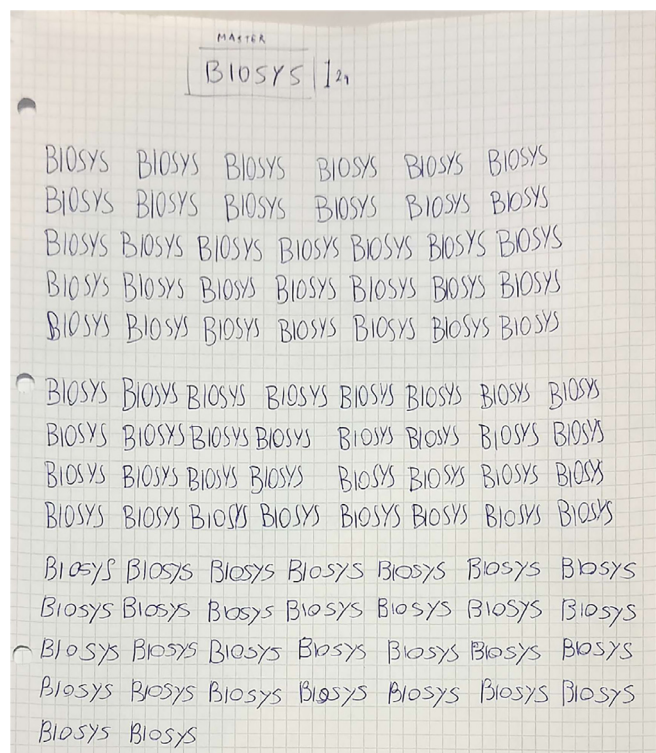 MASTER
BIOSYS 124
BIOSYS BIOSYS BIOSYS BIOSYS BIOSYS BIOSYS
BIOSYS BIOSYS BIOSYS BIOSYS BIOSYS BIOSYS
BIOSYS BIOSYS BIOSYS BIOSYS BIOSYS BIOSYS BIOSYS
BIOSYS BIOSYS BIOSYS BIOSYS BIOSYS BIOSYS BIOSYS
BIOSYS BIOSYS BIOSYS BIOSYS BIOSYS BIOSYS BIOSYS
BIOSYS BIOSYS BIOSYS BIOSYS BIOSYS BIOSYS BIOSYS BIOSYS
BIOSYS BIOSYS BIOSYS BIOSYS BIOSYS BIOSYS BIOSYS BIOSYS
BIOSYS BIOSYS BIOSYS BIOSYS BIOSYS BIOSYS BIOSYS BIOSYS
BIOSYS BIOSYS BIOSYS BIOSYS BIOSYS BIOSYS BIOSYS BIOSYS
BIOSYS BIOSYS BIOSYS BIOSYS BIOSYS BIOSYS BIOSYS
BIOSYS BIOSYS BIOSYS BIOSYS BIOSYS BIOSYS BIOSYS
BIOSYS BIOSYS BIOSYS BIOSYS BIOSYS BIOSYS BIOSYS
BIOSYS BIOSYS BIOSYS BIOSYS BIOSYS BIOSYS BIOSYS
BIOSYS BIOSYS